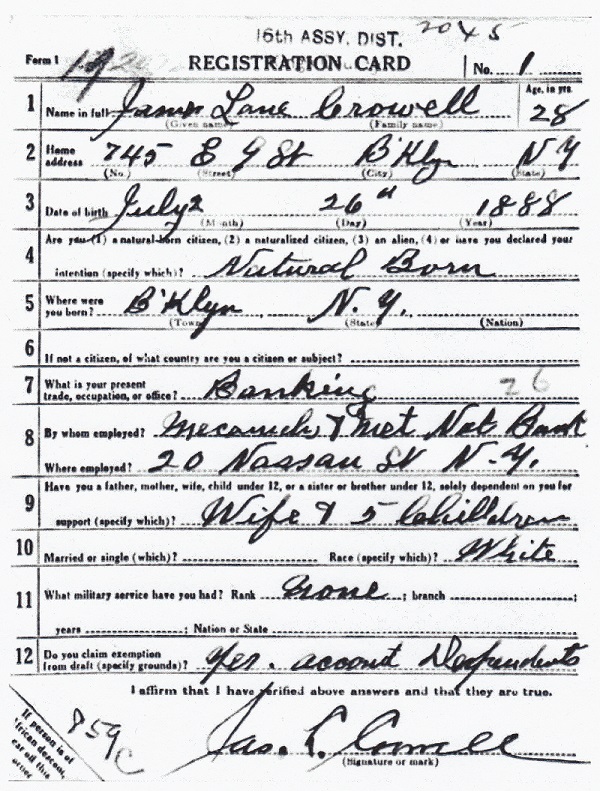 16th ASSY. DIST. 2045
Form 1 REGISTRATION CARD No. 1
1 Name in full James Lane Crowell Age, in yrs. 28
(Given name) (Family name)
2 Home address 745 E 9 St B'Klyn N Y
(No.) (Street) (City) (State)
3 Date of birth July 2 26th 1888
(Month) (Day) (Year)
4 Are you (1) a natural-born citizen, (2) a naturalized citizen, (3) an alien, (4) or have you declared your
intention (specify which)? Natural Born
5 Where were you born? B'Klyn N. Y.
(Town) (State) (Nation)
6 If not a citizen, of what country are you a citizen or subject?
7 What is your present trade, occupation, or office? Banking 26
8 By whom employed? & Met Nat Bank
Where employed? 20 Nassau St N-Y.
9 Have you a father, mother, wife, child under 12, or a sister or brother under 12, solely dependent on you for
support (specify which)? Wife & 5 Children
10 Married or single (which)? Race (specify which)? White
11 What military service have you had? Rank None ; branch ;
years ; Nation or State
12 Do you claim exemption from draft (specify grounds)? Yes. account Dependents
I affirm that I have verified above answers and that they are true.
Jas. L. Crowell
(Signature or mark)
If person is of
African descent,
tear off this
corner
859
C